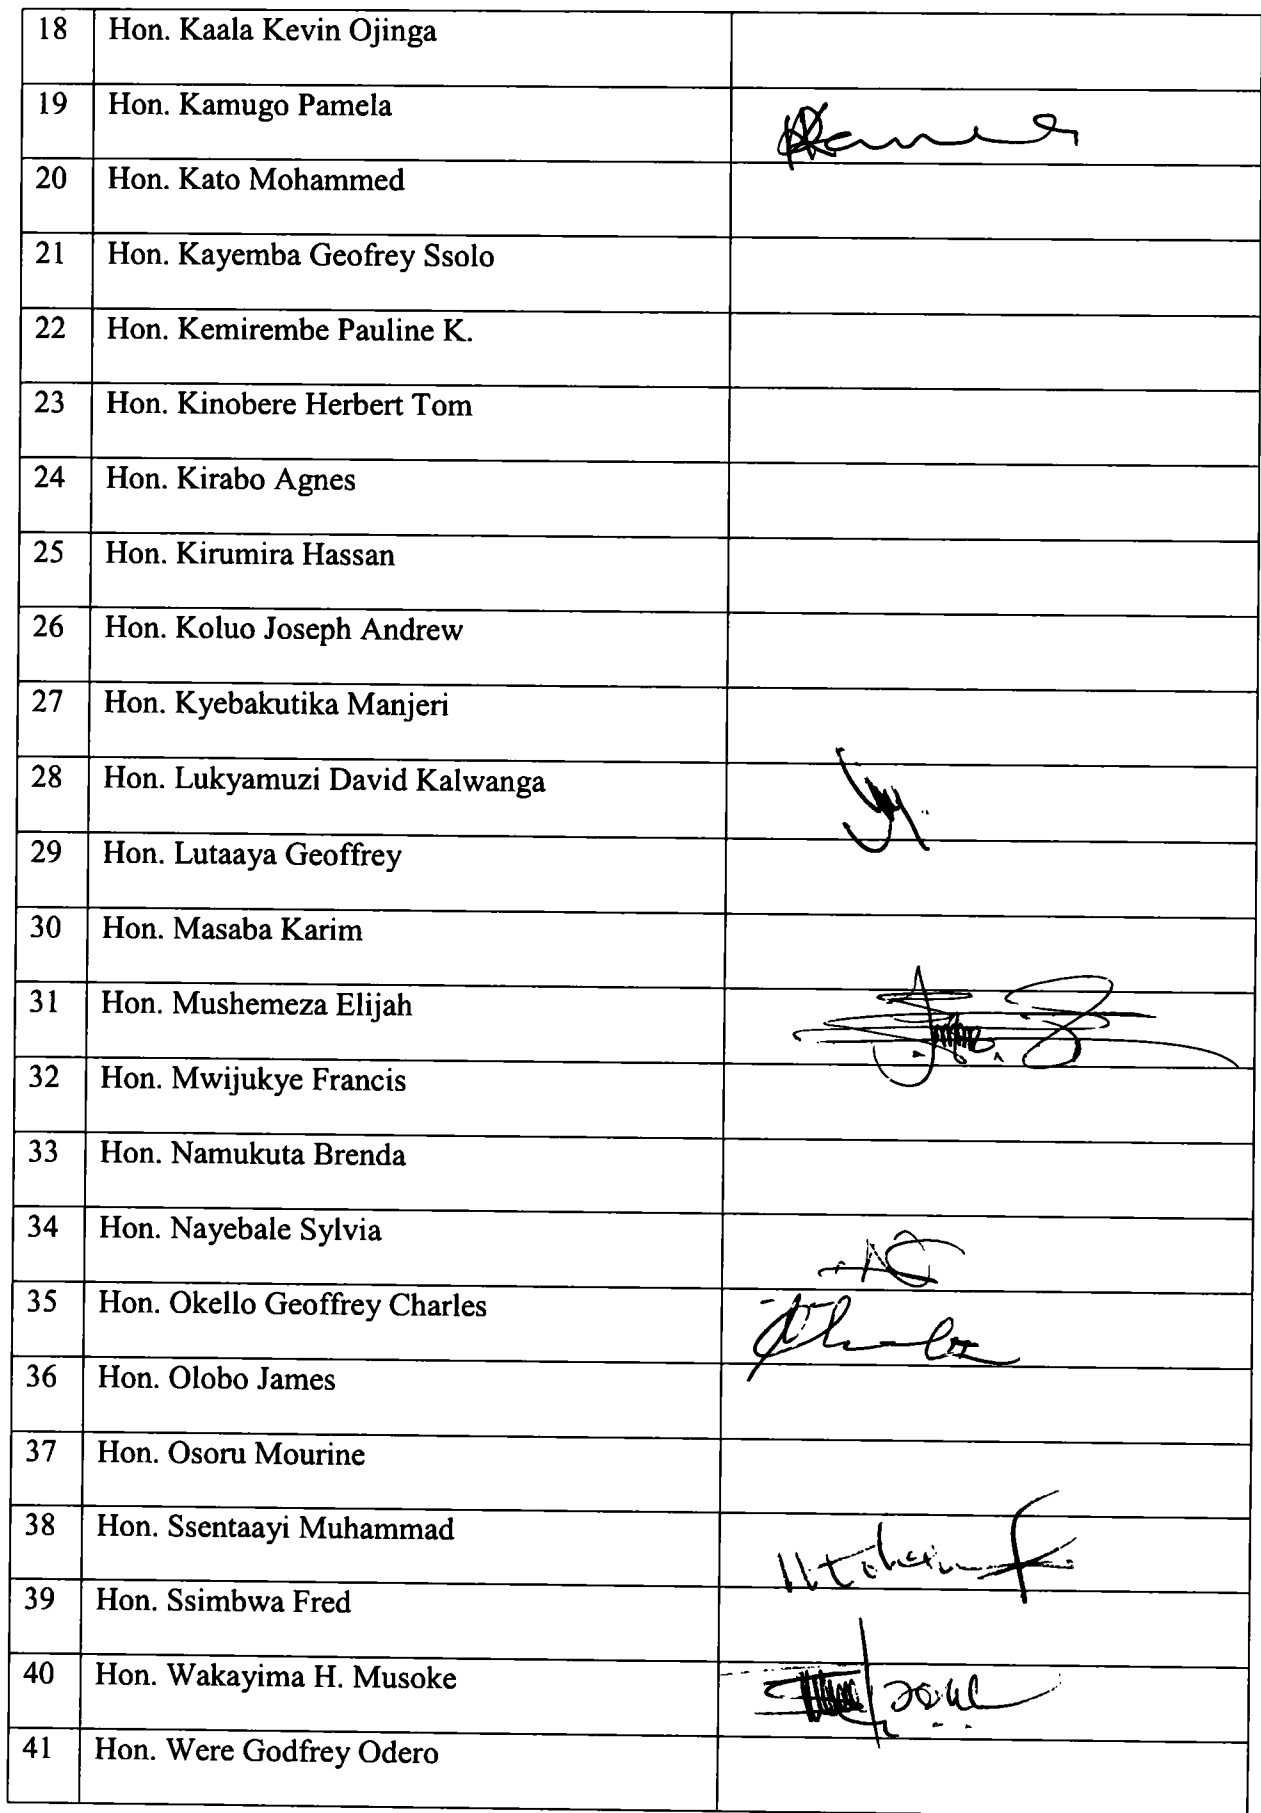 18 Hon. Kaala Kevin Ojinga
19 Hon. Kamugo Pamela
20 Hon. Kato Mohammed
21 Hon. Kayemba Geofrey Ssolo
22 Hon. Kemirembe Pauline K.
23 Hon. Kinobere Herbert Tom
24 Hon. Kirabo Agnes
25 Hon. Kirumira Hassan
26 Hon. Koluo Joseph Andrew
27 Hon. Kyebakutika Manjeri
28 Hon. Lukyamuzi David Kalwanga
29 Hon. Lutaaya Geoffrey
30 Hon. Masaba Karim
31 Hon. Mushemeza Elijah
32 Hon. Mwijukye Francis
33 Hon. Namukuta Brenda
34 Hon. Nayebale Sylvia
35 Hon. Okello Geoffrey Charles
36 Hon. Olobo James
37 Hon. Osoru Mourine
38 Hon. Ssentaayi Muhammad
39 Hon. Ssimbwa Fred
40 Hon. Wakayima H. Musoke
41 Hon. Were Godfrey Odero